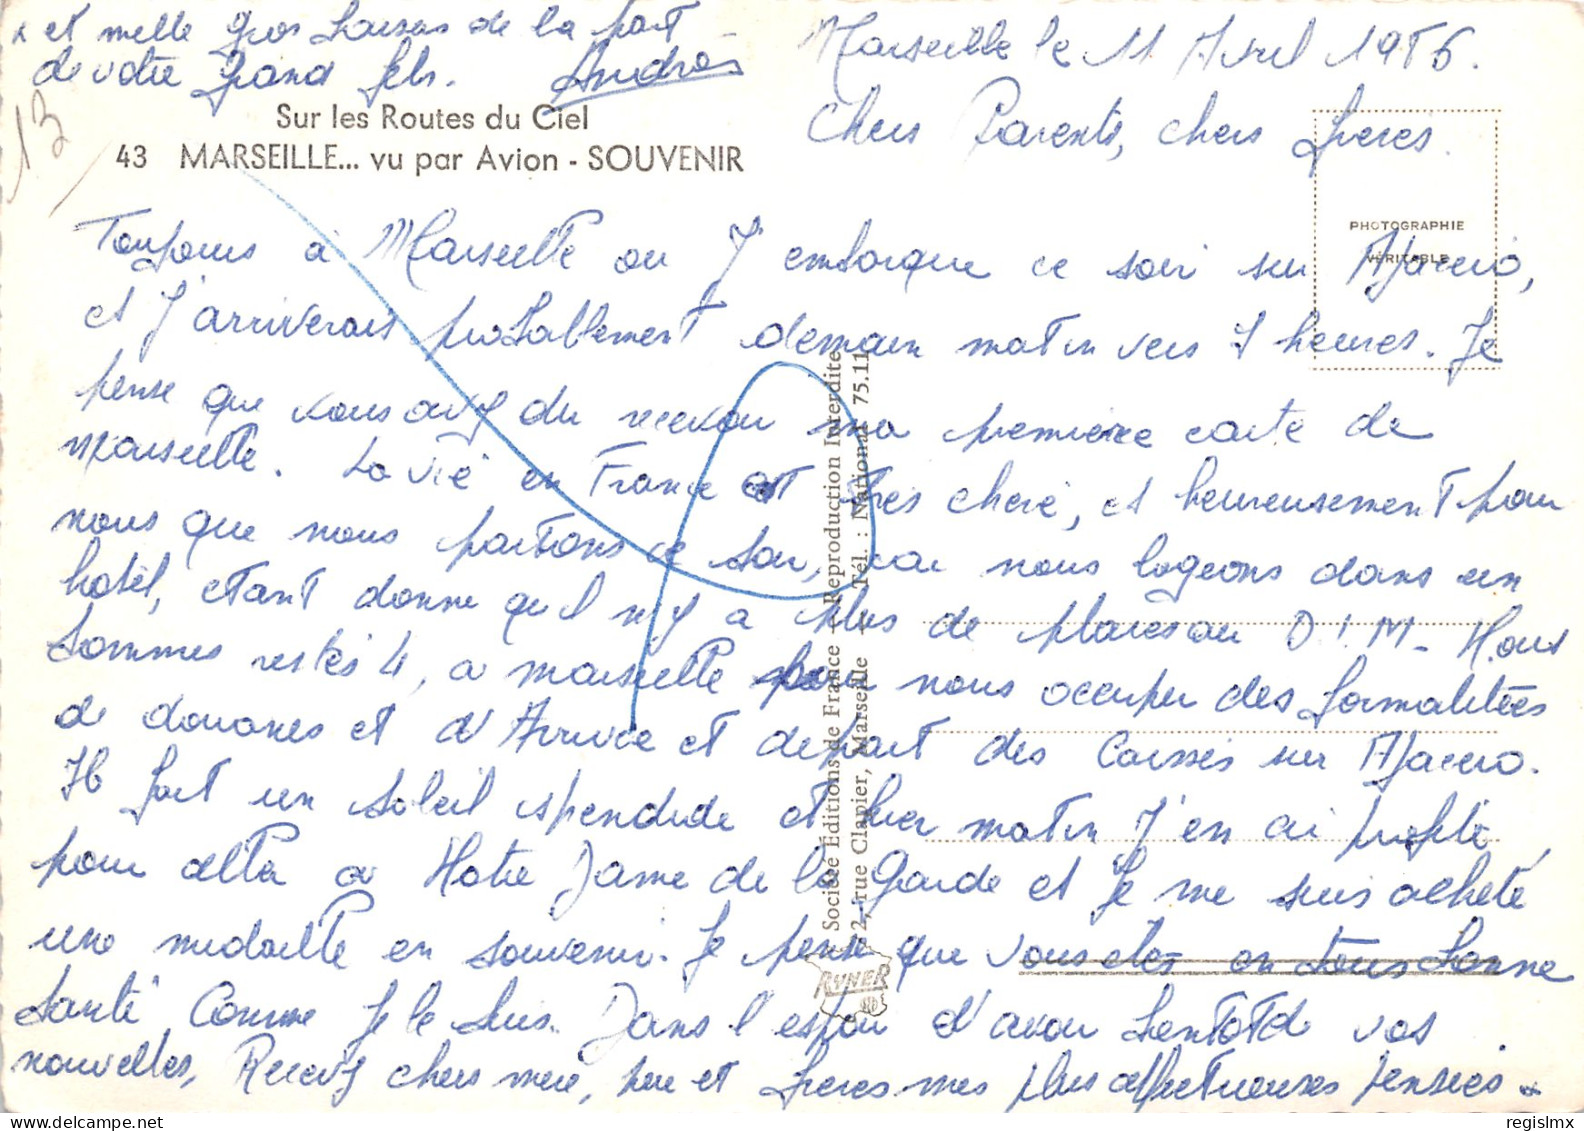 x et mille gros baisers de la part
de votre grand fils. Andres
Marseille le 11 Avril 1956.
13
Sur les Routes du Ciel
43 MARSEILLE... vu par Avion - SOUVENIR
Chers Parents, chers freres.
PHOTOGRAPHIE
VÉRITABLE
Toujours à Marseille ou J'embarque ce soir sur Ajaccio,
et J'arriverais probablement demain matin vers 7 heures. Je
pense que vous avez du recevoir ma première carte de
Marseille. La vie en France est très chere, et heureusement pour
nous que nous partions ce soir, car nous logeons dans un
hotel, etant donne qu'il n'y a plus de places au D.I.M - Nous
sommes restés 4, a marseille pour nous occuper des formalitées
de douanes et d'Arrivée et depart des Caisses sur Ajaccio.
Il fait un soleil splendide et hier matin J'en ai profité
pour aller a Notre Dame de la Garde et Je me suis acheté
une medaille en souvenir. Je pense que vous etes en tous bonne
santé comme Je le suis. Dans l'espoir d'avoir bientotd vos
nouvelles, Recevez chers mere, pere et freres mes plus affectueuses pensées x
Société Éditions de France - Reproduction Interdite
2, rue Clapier, Marseille - Tél. : National 75.11
RYNER